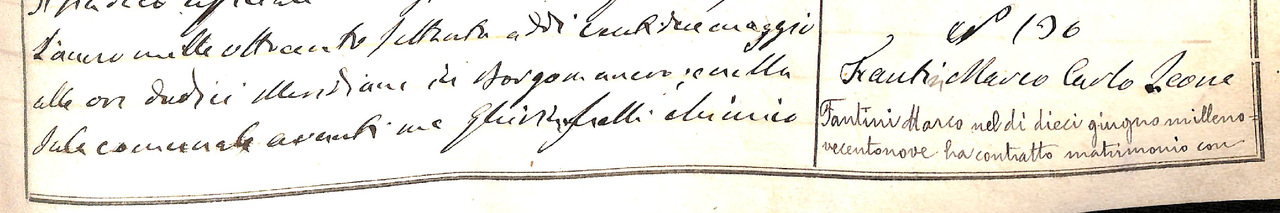 L'anno mille ottocento settanta addi ventidue maggio
alle ore dodici Meridiane in Borgomanero e nella
Sala comunale avanti me chimico
N° 130
Fantini Marco Carlo Leone
Fantini Marco nel di dieci giugno milleno=
vecentonove ha contratto matrimonio con